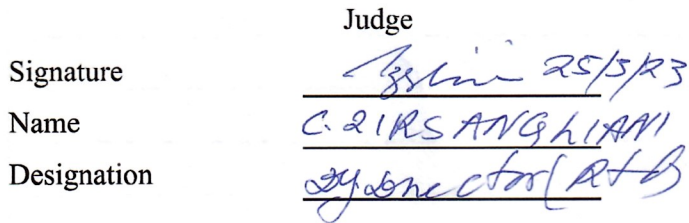 Judge
Signature 25/3/23
Name C. ZIRSANGLIANI
Designation Dy. Director (